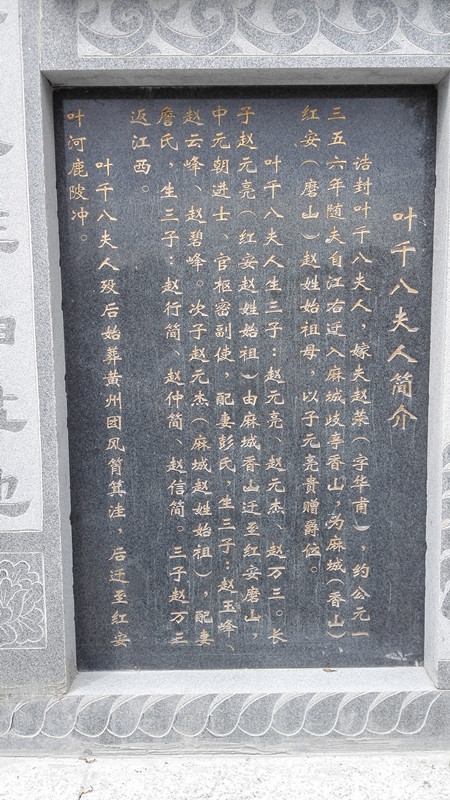 叶千八夫人简介
诰封叶千八夫人，嫁夫赵荣（字华甫），约公元一
三五六年随夫自江右迁入麻城歧亭香山，为麻城（香山）、
红安（磨山）赵姓始祖母，以子元亮贵赠爵位。
叶千八夫人生三子：赵元亮、赵元杰、赵万三。长
子赵元亮（红安赵姓始祖）由麻城香山迁至红安磨山，
中元朝进士、官枢密副使，配妻彭氏，生三子：赵玉峰、
赵云峰、赵碧峰。次子赵元杰（麻城赵姓始祖），配妻
詹氏，生三子：赵行简、赵仲简、赵信简。三子赵万三
返江西。
叶千八夫人殁后始葬黄州团风筲箕洼，后迁至红安
叶河鹿陂冲。